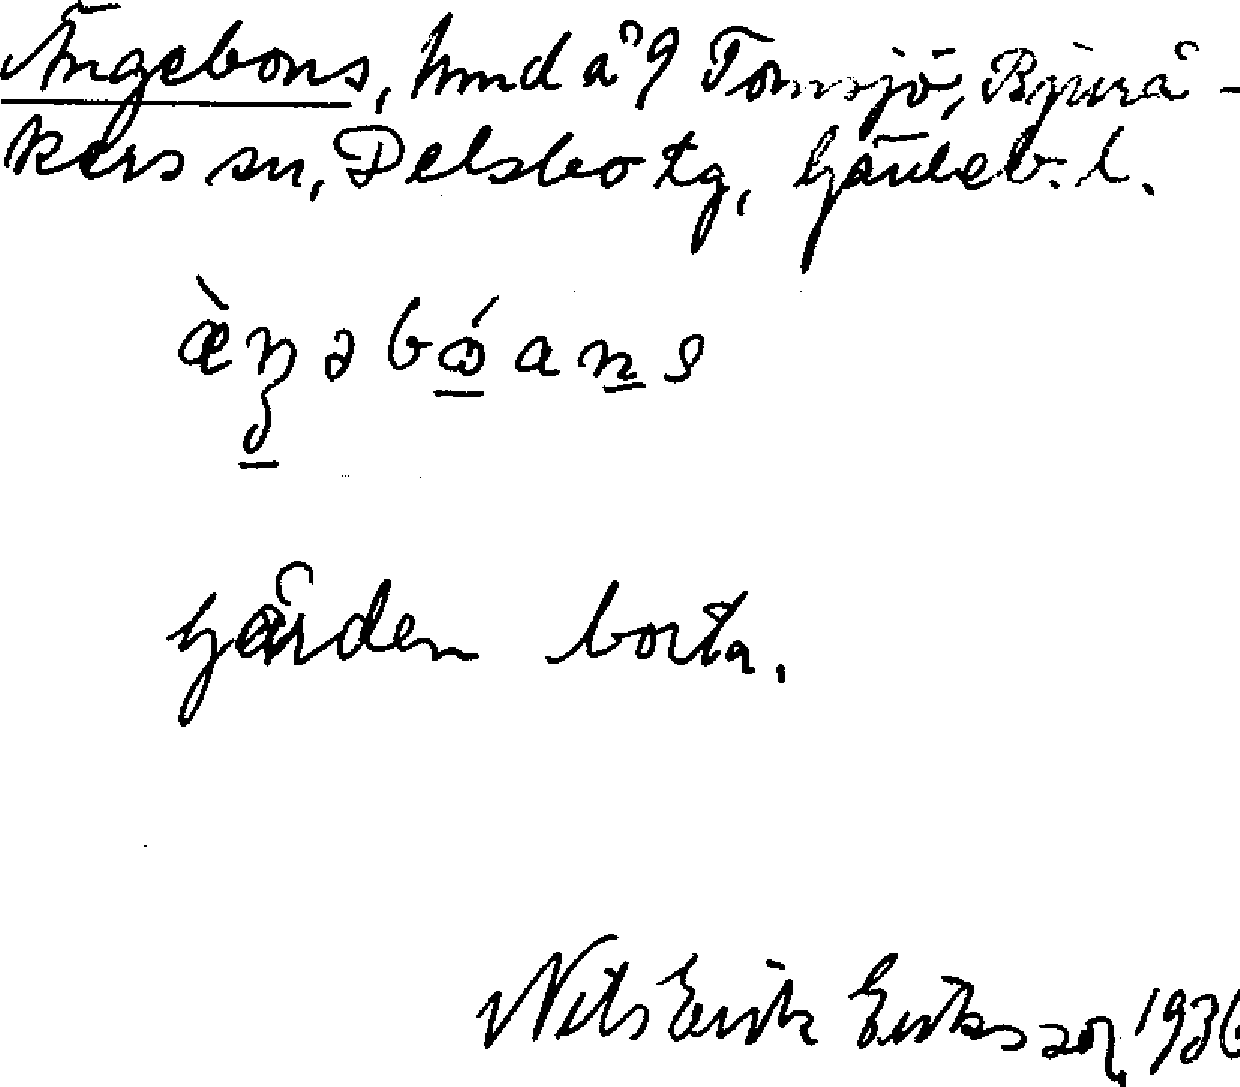 Ängebons, hmd å 9 Tomsjö, Bjurå-
kers sn, Delsbo tg, Gävleb. l.
gården borta.
Nils Erik Eriksson, 1936